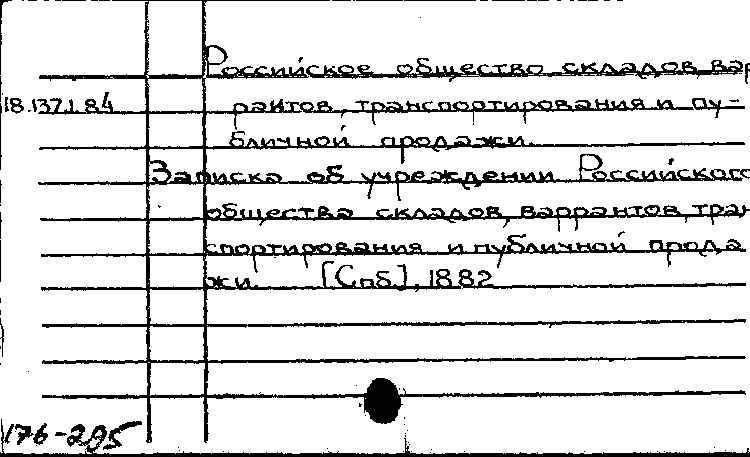 Российское общество складов, вар
18.137.1.84 рантов, транспортирования и пу-
бличной продажи.
Записка об учреждении Российского
общества складов, варрантов, тран
спортирования и публичной прода
жи. [Спб.], 1882
176-295